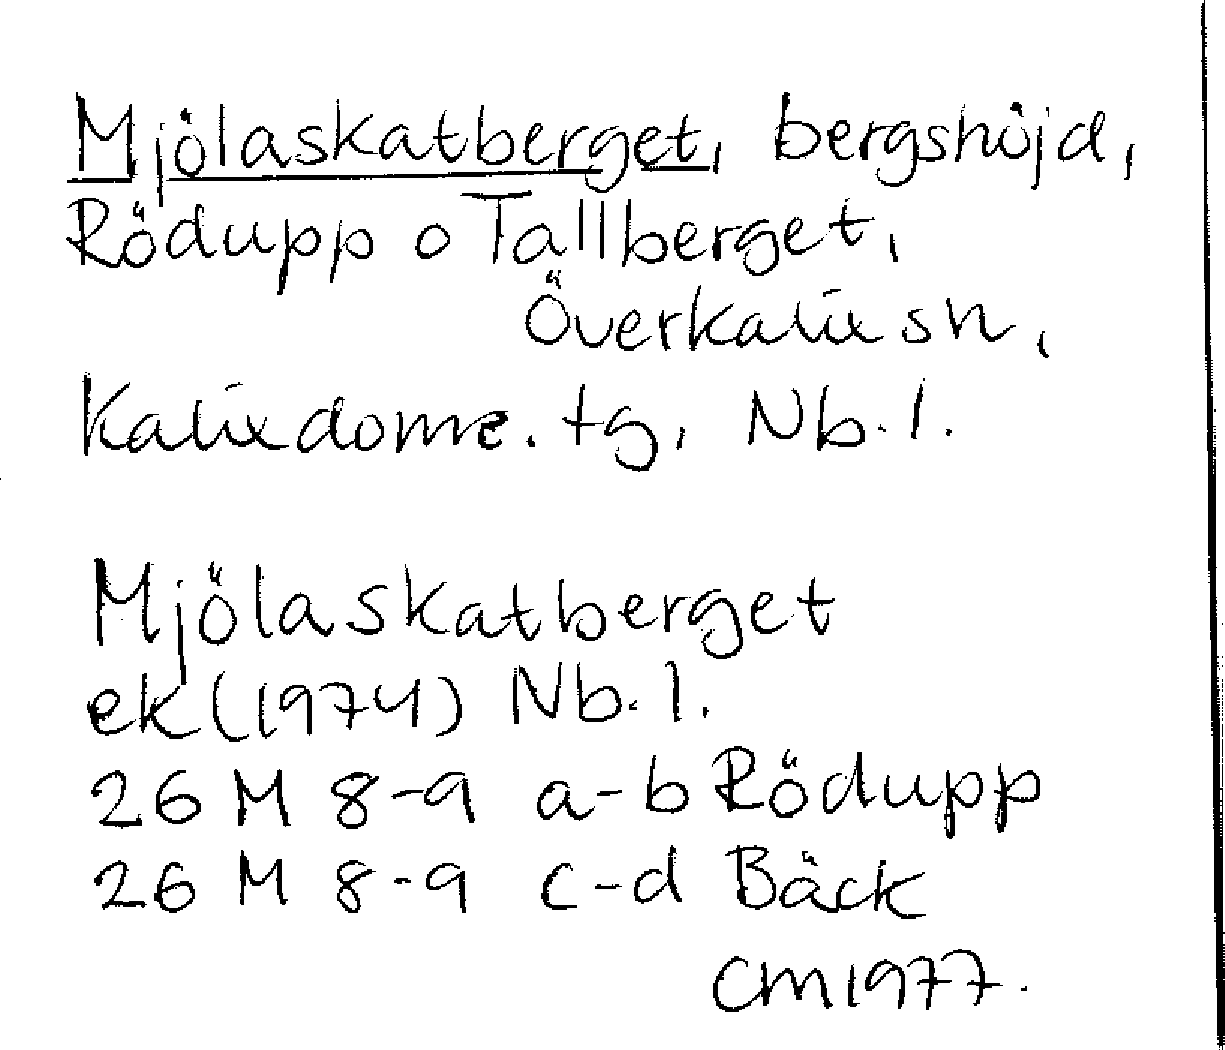 Mjölaskatberget, bergshöjd,
Rödupp o Tallberget,
Överkalix sn,
Kalixdome. tg, Nb. l.
Mjölaskatberget
ek (1974) Nb. l.
26 M 8-9 a-b Rödupp
26 M 8-9 c-d Bäck
CM 1977.